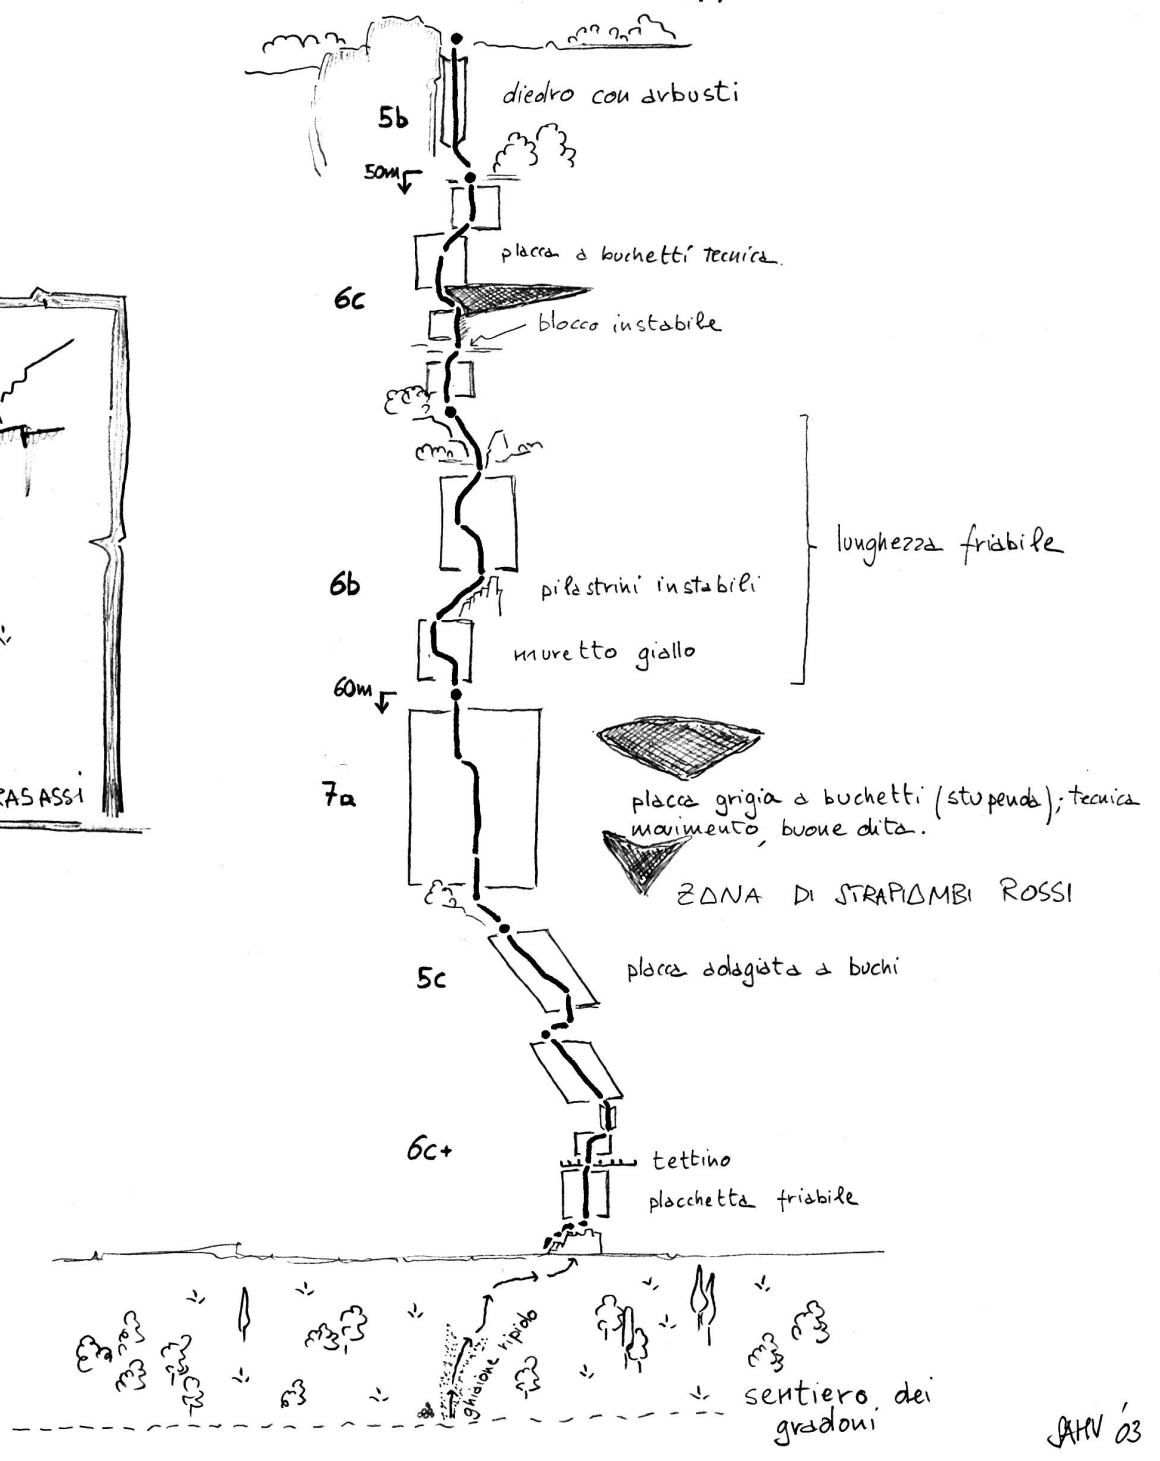 diedro con arbusti
5b
50m
placca a buchetti tecnica.
6c
blocco instabile
lunghezza friabile
6b
pilastrini instabili
muretto giallo
60m
7a
RASASSI
placca grigia a buchetti (stupenda); tecnica
movimento, buone dita.
ZONA DI STRAPIOMBI ROSSI
5c
placca adagiata a buchi
6c+
tettino
placchetta friabile
ghiaione ripido
sentiero dei
gradoni
'03